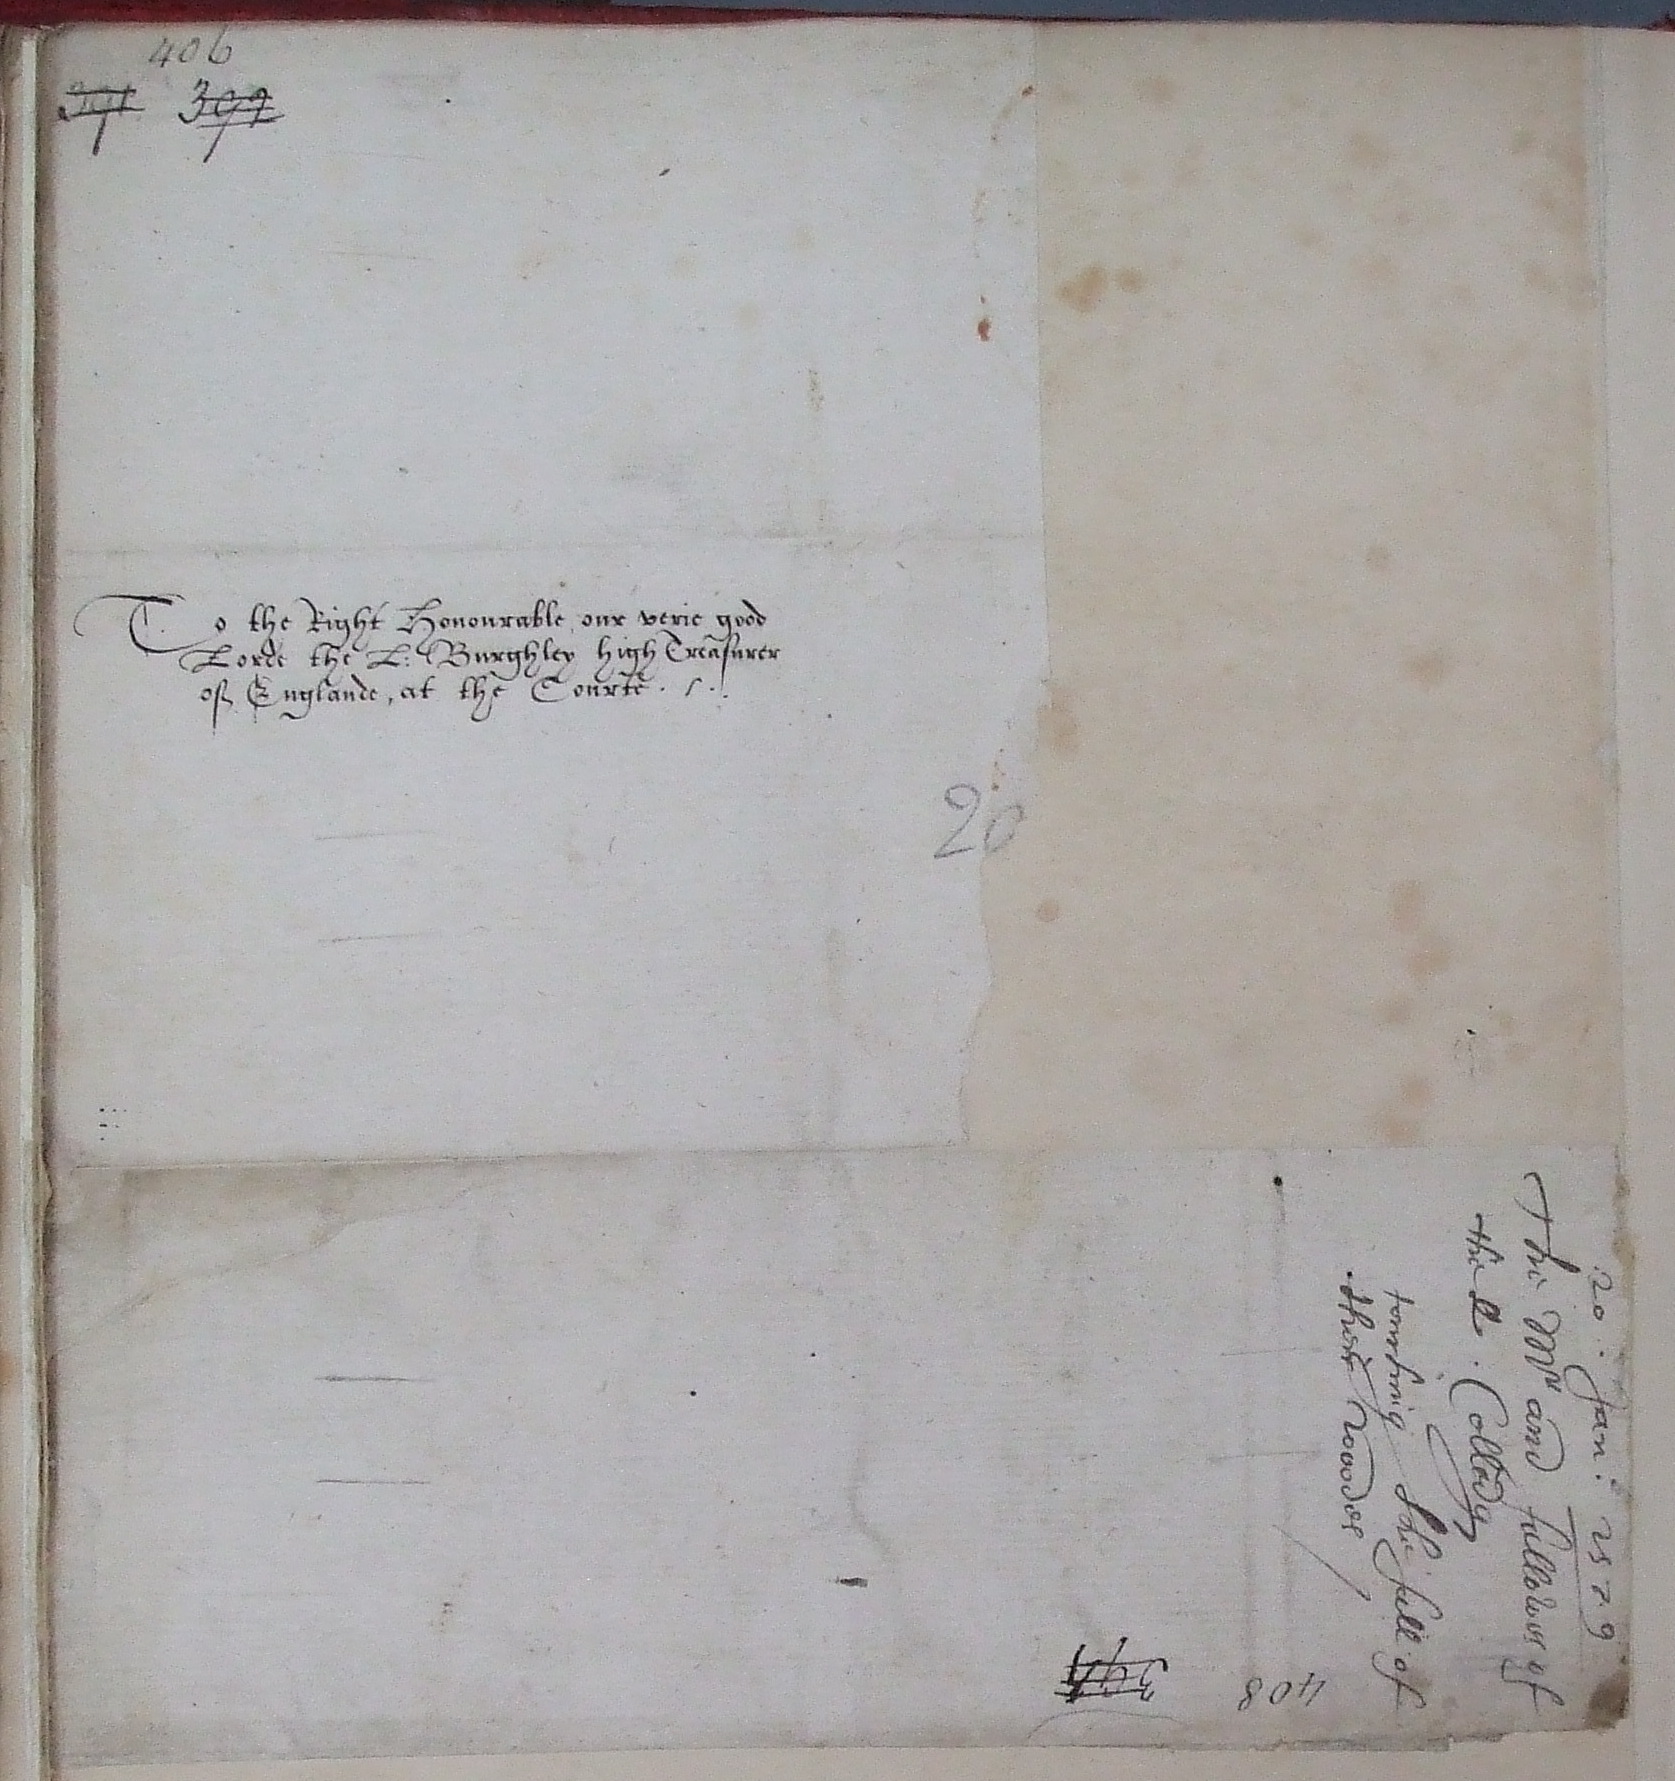 406
397
To the Right Honourable our verie good
Lorde the L: Burghley high Treasurer
of Englande, at the Courte. /.
20
20. Jan: 1579
The Mr and fellowes of
the Colledg
towching the sale of
their woodes
408